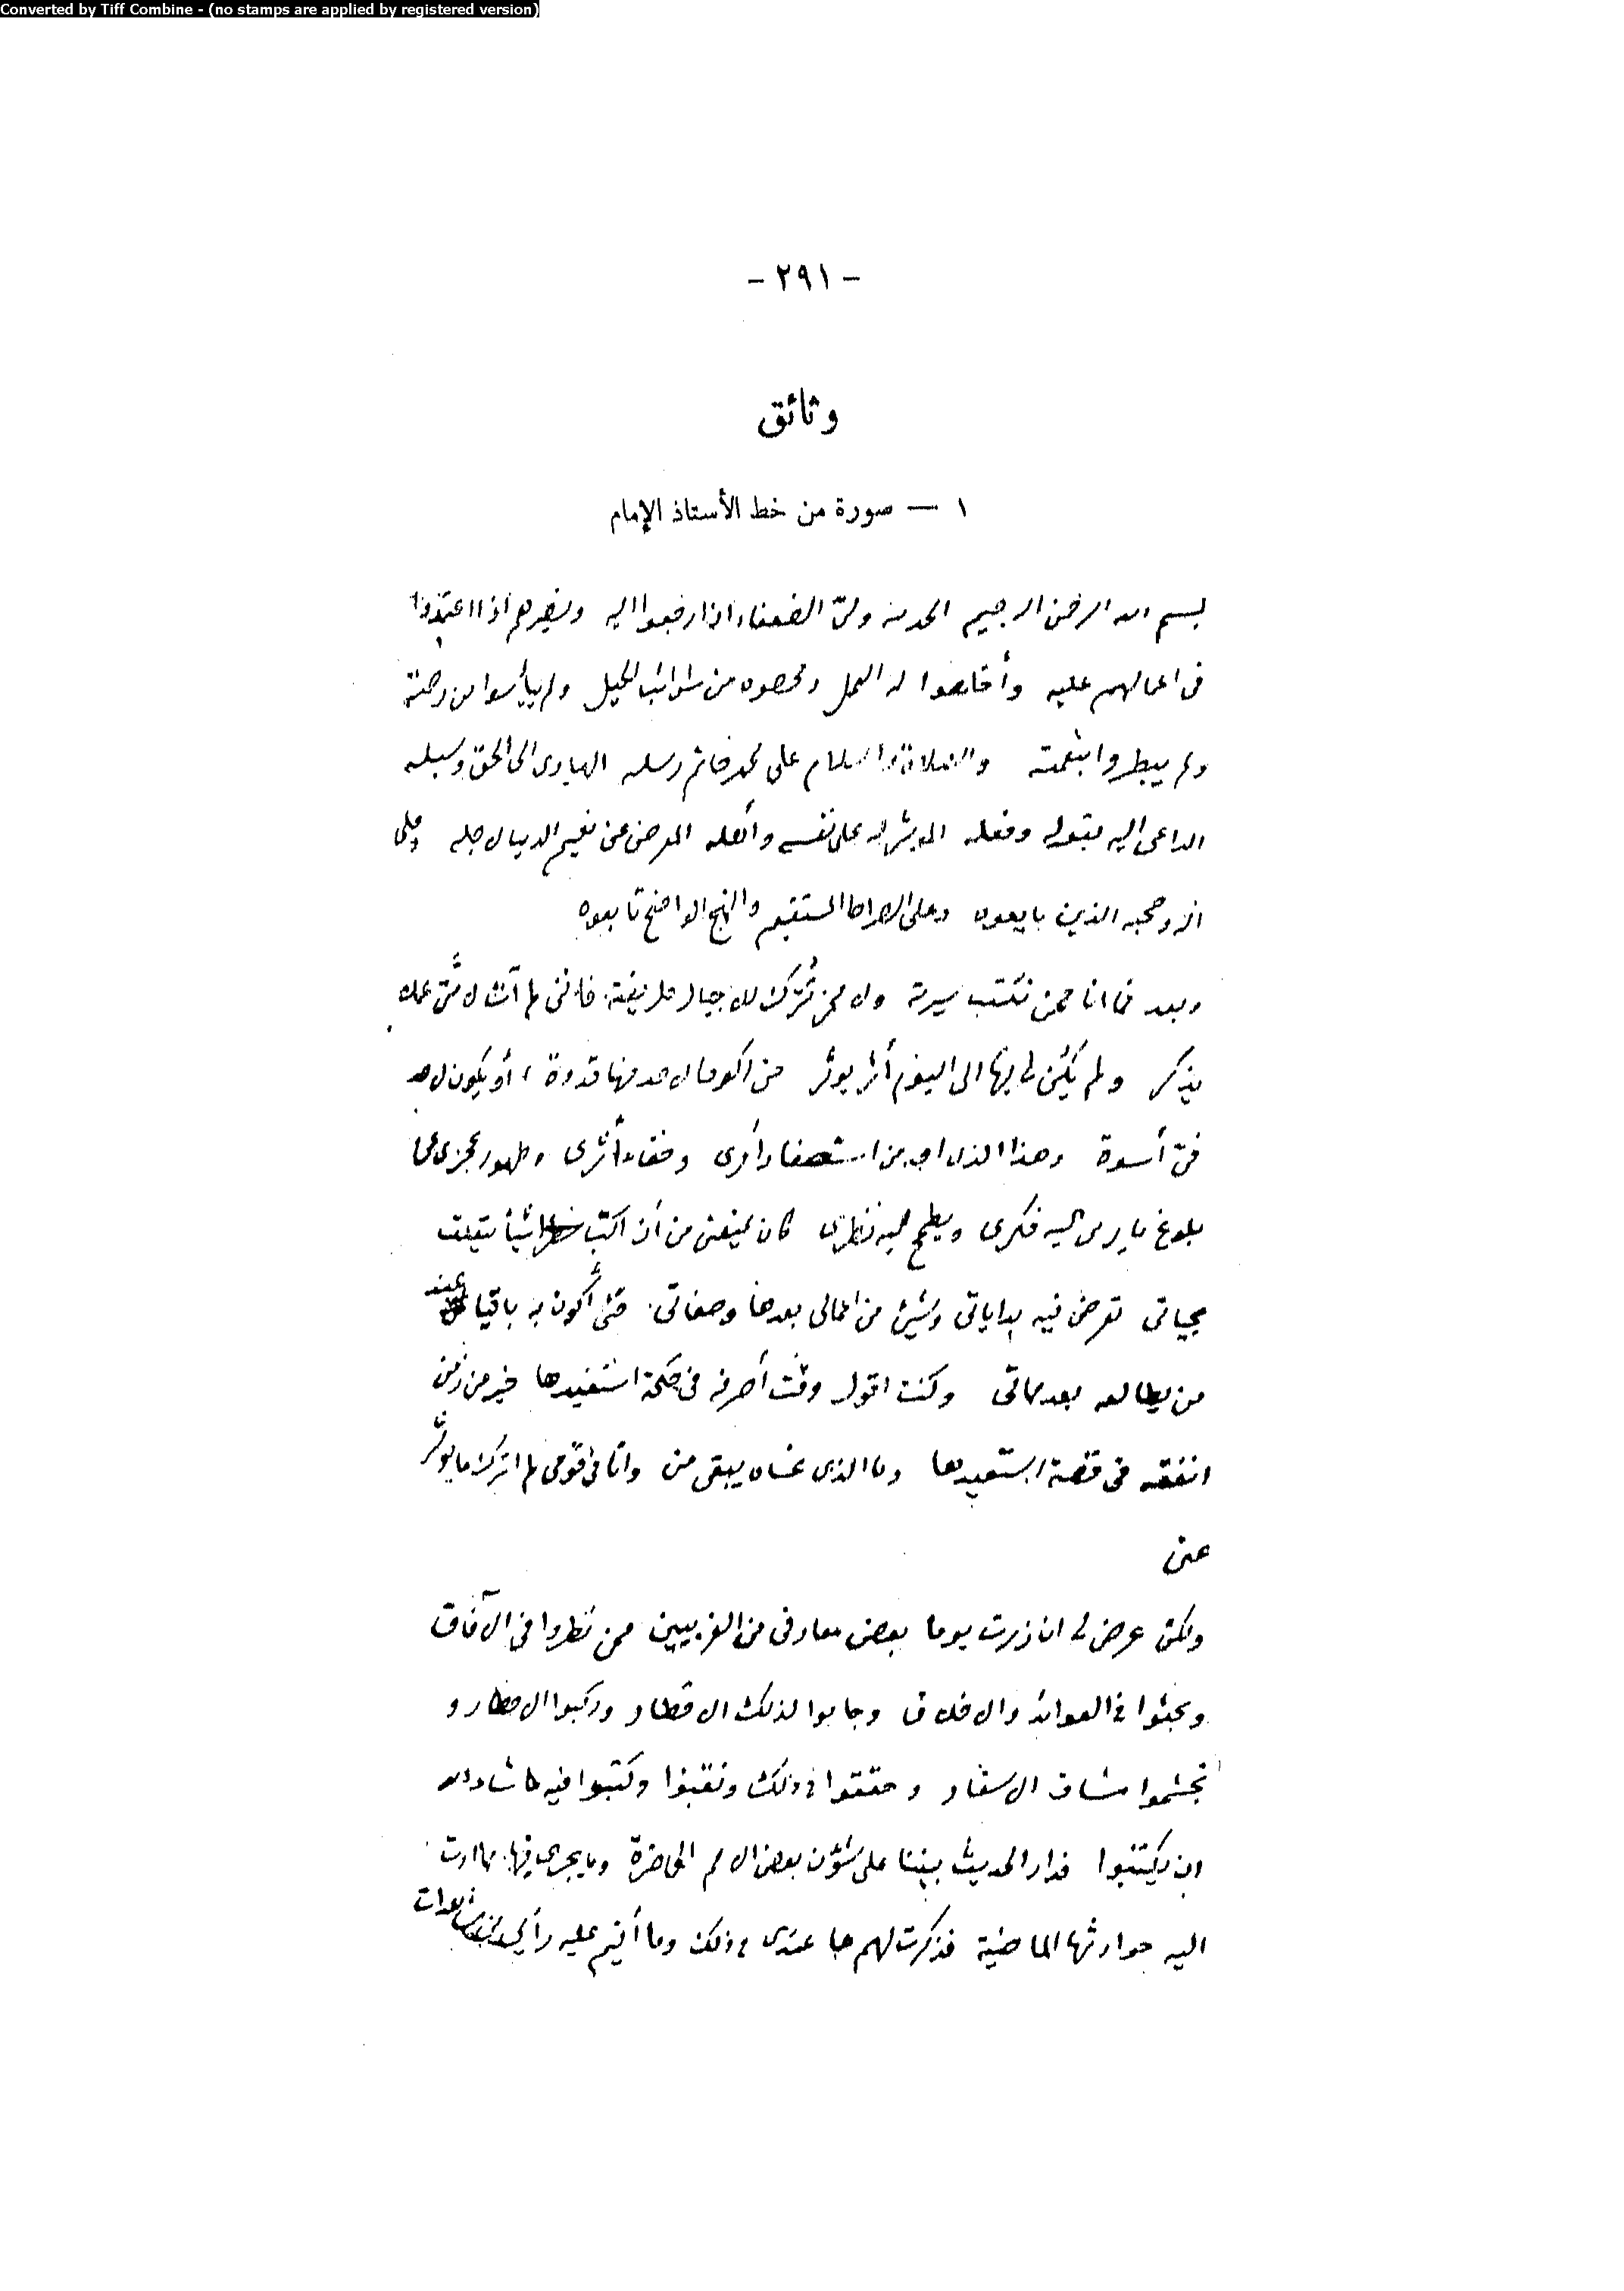 Converted by Tiff Combine - (no stamps are applied by registered version)
- ٢٩١ -
وثائق
١ — صورة من خط الأستاذ الإمام
بسم الله الرحمن الرحيم الحمد لله ولىّ الضعفاء اذا رجعوا اليه ونصيرهم اذا اعتمدوا
فى اعمالهم عليه وأخلصوا له العمل ومحصوه من شوائب الحيل ولم ييأسوا من رحمته
ولم يبطروا بنعمته والصلاة والسلام على محمد خاتم رسله الهادى الى الحق وسبله
الداعى اليه بقوله وفعله المؤثر له على نفسه وأهله المعرض عن نعيم الدنيا لاجله وعلى
آله وصحبه الذين بايعوه وعلى الصراط المستقيم والنهج الواضح تابعوه
وبعد فما انا ممن تكتب سيرته ولا ممن تُترك للاجيال طريقته فاننى لم آت لأمتى عملا
يذكر ولم يكن لى فيها الى اليوم أثر يؤثر حتى اكون لاحد منها قدوة، أو يكون لاحد
فىّ أسوة وهذا الذى اجد من استصغار أمرى وخفاء أثرى وظهور عجزى عما
بلوغ ما يرمى اليه فكرى ويطمح اليه نظرى كان يمنعنى من أن اكتب شيأ يتعلق
بحياتى تعرض فيه بداياتى وشئ من اعمالى بعدها وصفاتى حتى أكون به باقيا عند
من يطالعه بعد مماتى وكنت اقول وقت أصرفه فى حكمة استفيدها خير من زمن
انفقه فى قصة استعيدها وما الذى عساه يبقى منى وانا فى قومى لم اترك ما يؤثر
عنى
ولكن عرض لى ان زرت يوما بعض معارفى من الغربيين ممن نظروا فى الآفاق
وبحثوا فى العوائد والاخلاق وجابوا لذلك الاقطار وركبوا الاخطار و
تجشموا مشاق الاسفار وحققوا فى ذلك ونقبوا وكتبوا فيه ما شاء الله
ان يكتبوا فدار الحديث بيننا على شؤون بعض الامم الحاضرة وما يجرى فيها وما ادت
اليه حوادثها الماضية فذكرت لهم ما عندى فى ذلك وما أقيم عليه رأيى